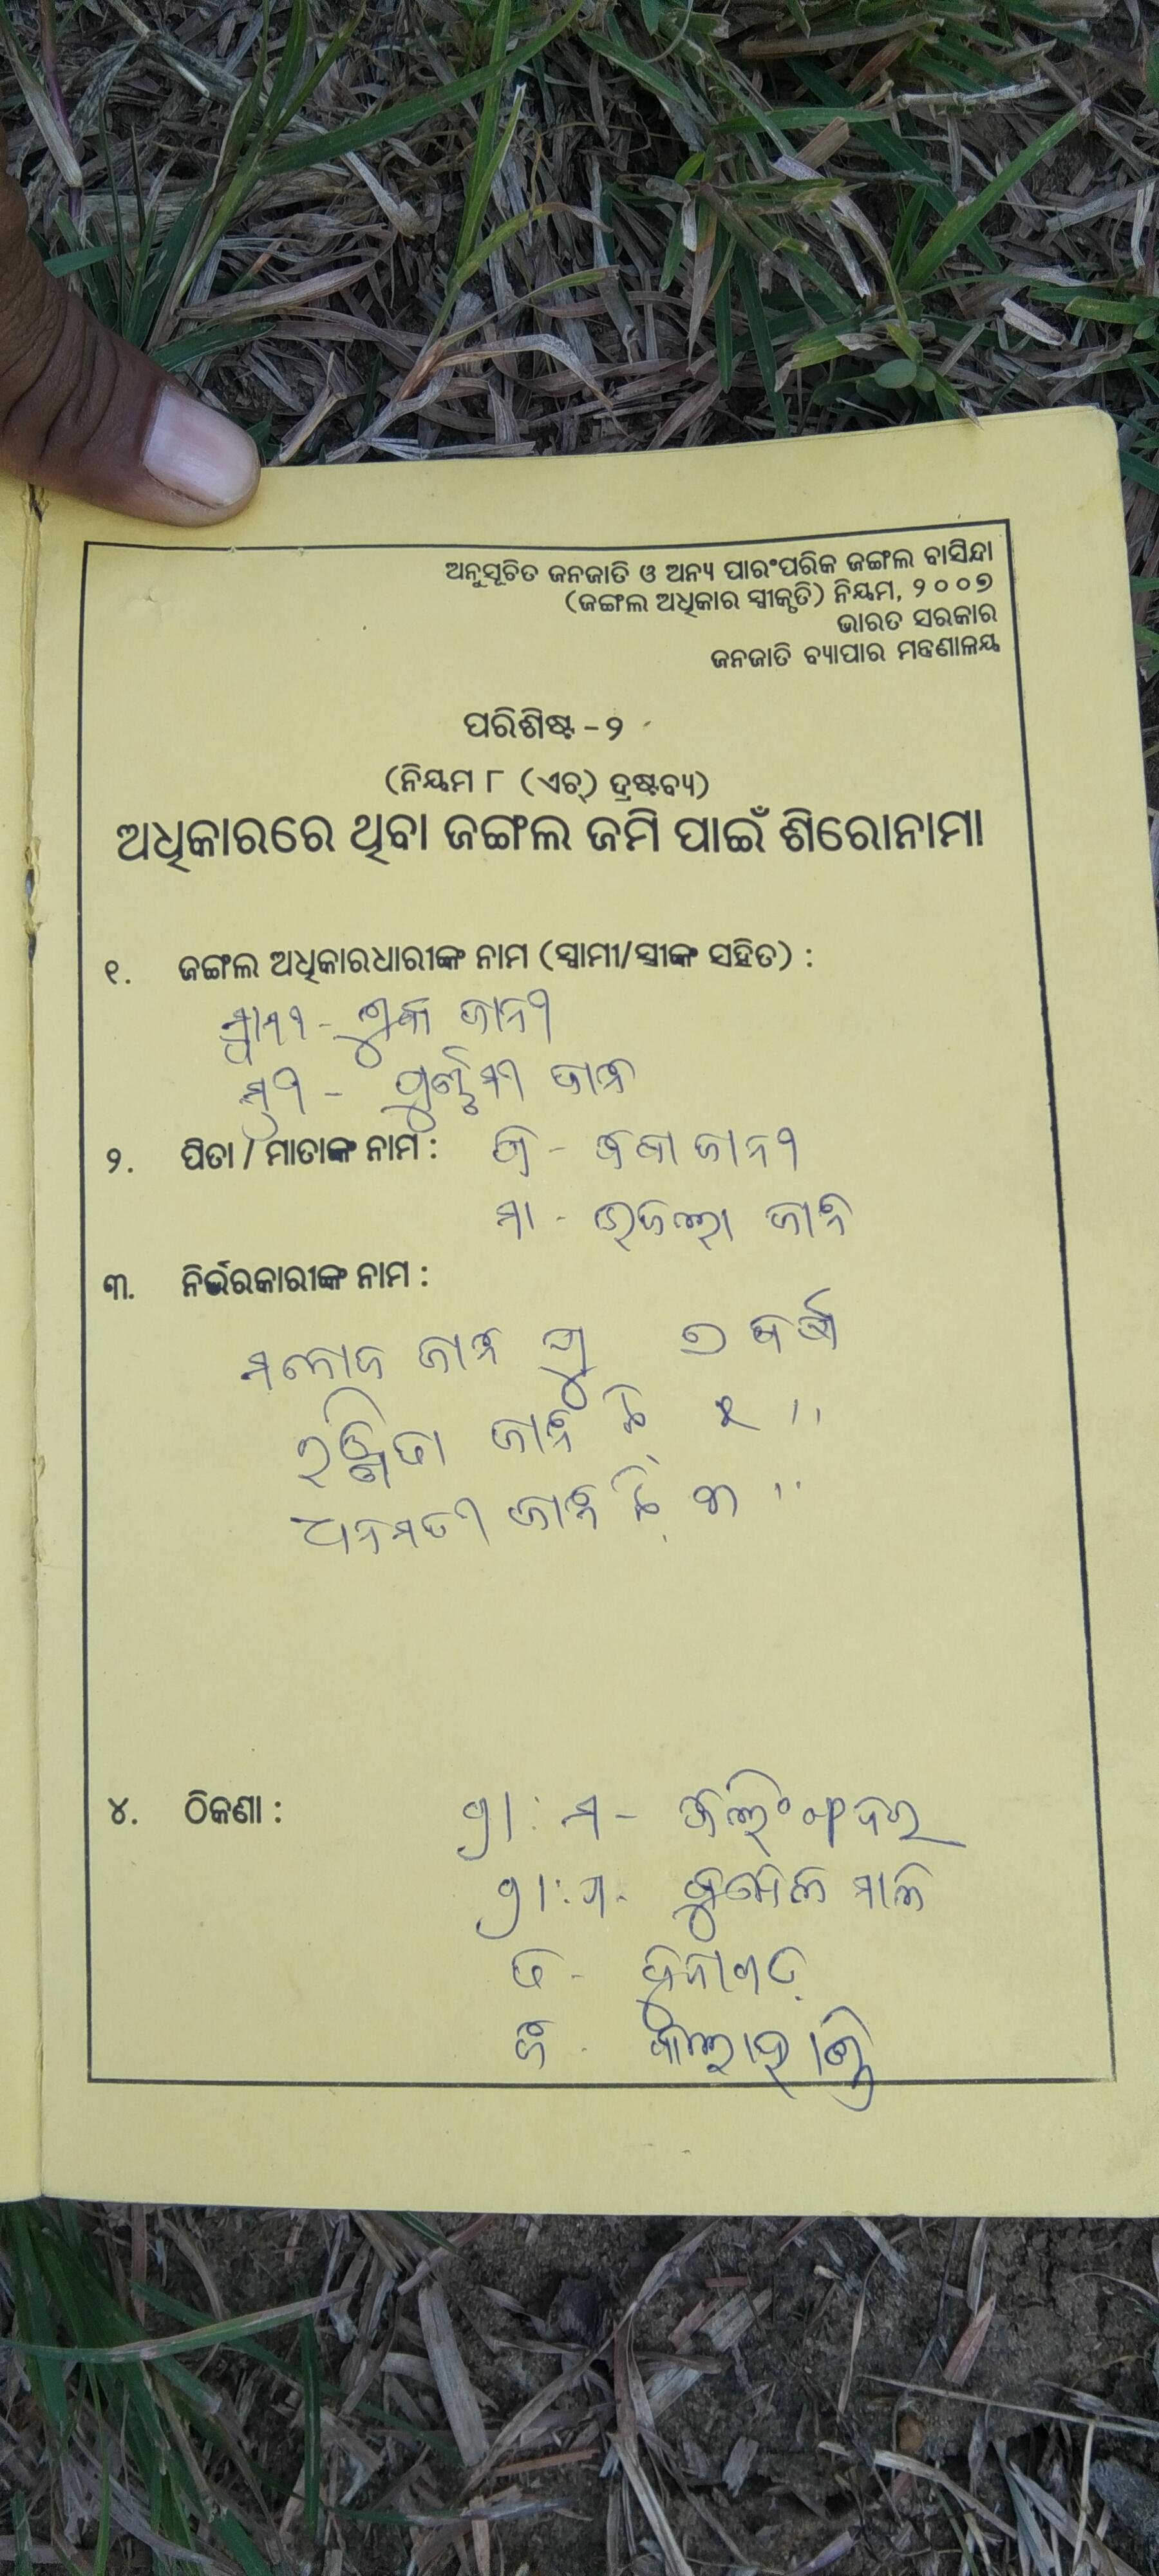 ଅନୁସୂଚିତ ଜନଜାତି ଓ ଅନ୍ୟ ପାରଂପରିକ ଜଙ୍ଗଲ ବାସିନ୍ଦା
(ଜଙ୍ଗଲ ଅଧିକାର ସ୍ୱୀକୃତି) ନିୟମ, ୨୦୦୭
ଭାରତ ସରକାର
ଜନଜାତି ବ୍ୟାପାର ମନ୍ତ୍ରଣାଳୟ
ପରିଶିଷ୍ଟ - ୨
(ନିୟମ ୮ (ଏଚ୍) ଦ୍ରଷ୍ଟବ୍ୟ)
ଅଧିକାରରେ ଥିବା ଜଙ୍ଗଲ ଜମି ପାଇଁ ଶିରୋନାମା
୧. ଜଙ୍ଗଲ ଅଧିକାରଧାରୀଙ୍କ ନାମ (ସ୍ୱାମୀ/ସ୍ତ୍ରୀଙ୍କ ସହିତ) :
ସ୍ୱାମୀ - ଜାନୀ
ସ୍ତ୍ରୀ - ଜାନି
୨. ପିତା / ମାତାଙ୍କ ନାମ : ପି - ଜାନୀ
ମା - ଜାନି
୩. ନିର୍ଭରକାରୀଙ୍କ ନାମ :
ମନୋଜ ଜାନି ପୁ ୭ ବର୍ଷ
ଜାନି ଝି ୫ ''
ଧନମତୀ ଜାନି ଝି ୩ ''
୪. ଠିକଣା : ଗ୍ରା: ସ -
ଗ୍ରା: ପ -
ତ - ଜୁନାଗଡ଼
ଜି - କଳାହାଣ୍ଡି